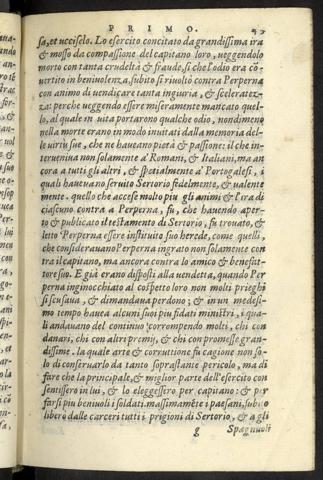 PRIMO.
sa, et ucciselo. Lo esercito concitato da grandissima ira
& mosso da compassione del capitano loro, ueggendolo
morto con tanta crudeltà & fraude, si che l'odio era cō
uertito in beniuolenza, subito si riuoltò contra Perperna
con animo di uendicare tanta ingiuria, & sceleratez-
za: perche ueggendo essere miseramente mancato quel-
lo, al quale in uita portarono qualche odio, nondimeno
nella morte erano in modo inuitati dalla memoria del-
le uirtu sue, che ne haueano pietà & passione: il che in-
terueniua non solamente a' Romani, & Italiani, ma an
cora a tutti gli altri, & spetialmente a' Portogalesi, i
quali haueuano seruito Sertorio fidelmente, & ualente
mente. quello che accese molto piu gli animi & l'ira di
ciascuno contra a Perperna, fu, che hauendo aper-
to & publicato il testamento di Sertorio, fu trouato, &
letto Perperna essere instituito suo herede, come quelli,
che considerauano Perperna ingrato non solamente con
tra il capitano, ma ancora contra lo amico & benefat-
tore suo. E già erano disposti alla uendetta, quando Per
perna inginocchiato al cospetto loro non molti prieghi
si scusaua, & dimandaua perdono; & in un medesi-
mo tempo haueа alcuni suoi piu fidati ministri, i qua-
li andauano del continuo corrompendo molti, chi con
danari, chi con altri premij, & chi con promesse gran-
dissime. la quale arte & corruttione fu cagione non so-
lo di conseruarlo da tanto soprastante pericolo, ma di
fare che la principale, & miglior parte dell'esercito con
sentissero in lui, & lo eleggessero per capitano: & per
farsi piu beniuoli i soldati, massimamēte i paesani, subito
liberò dalle carceri tutti i prigioni di Sertorio, & a gli
g Spagnuoli